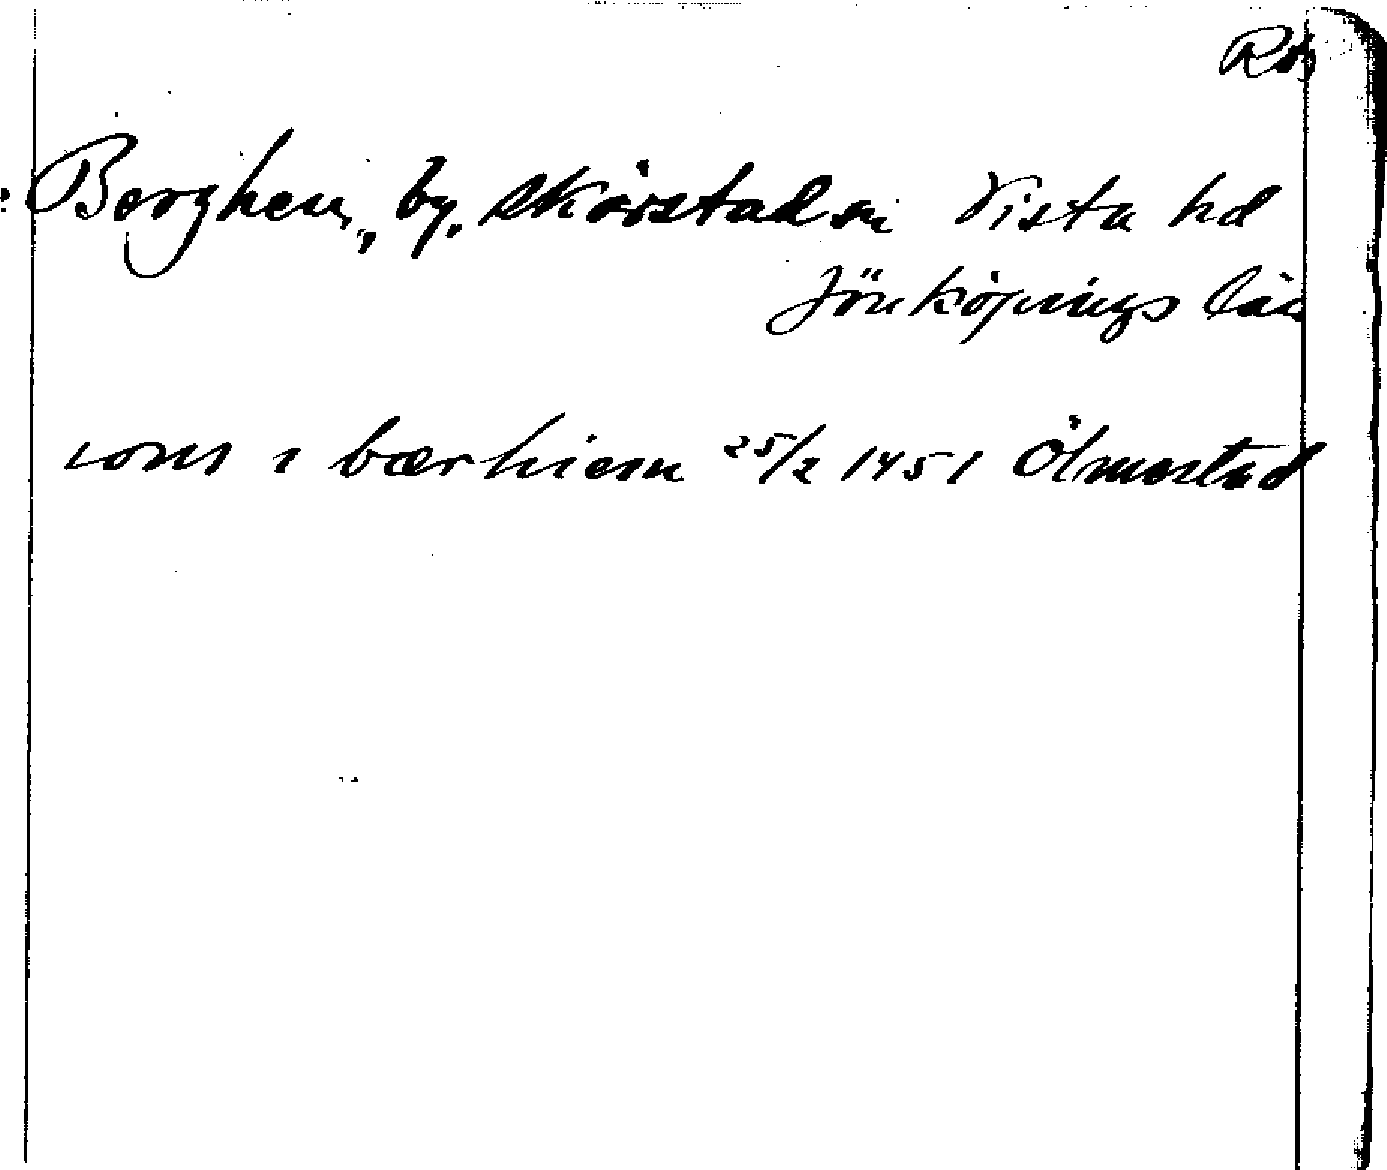 Berghem, by, Skärstad sn Vista hd
Jönköpings län
i bærhiem 25/2 1451 Ölmestad